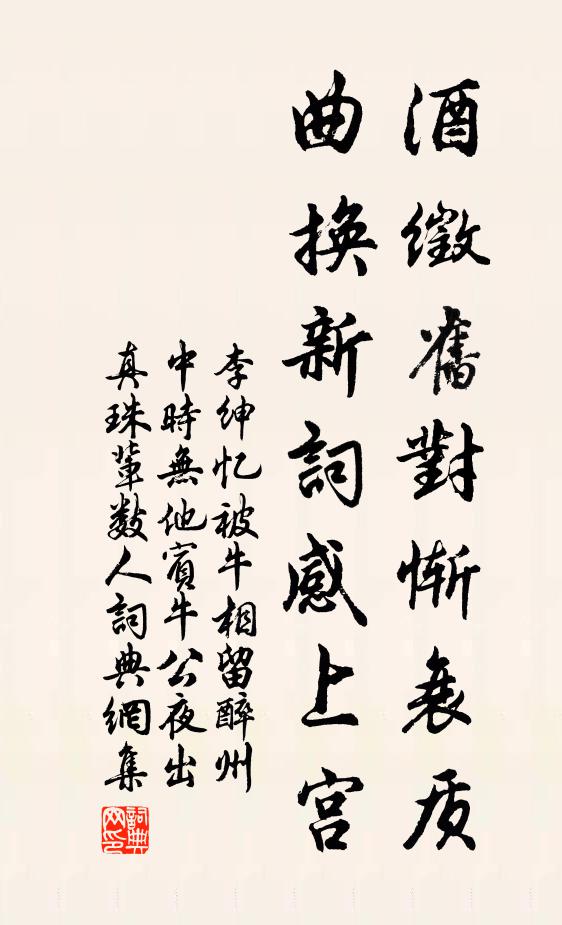 酒徵舊對慚衰质
曲換新詞感上宫
李紳忆被牛相留醉州
中時無他賓牛公夜出
真珠輩數人詞典網集
詞典网印